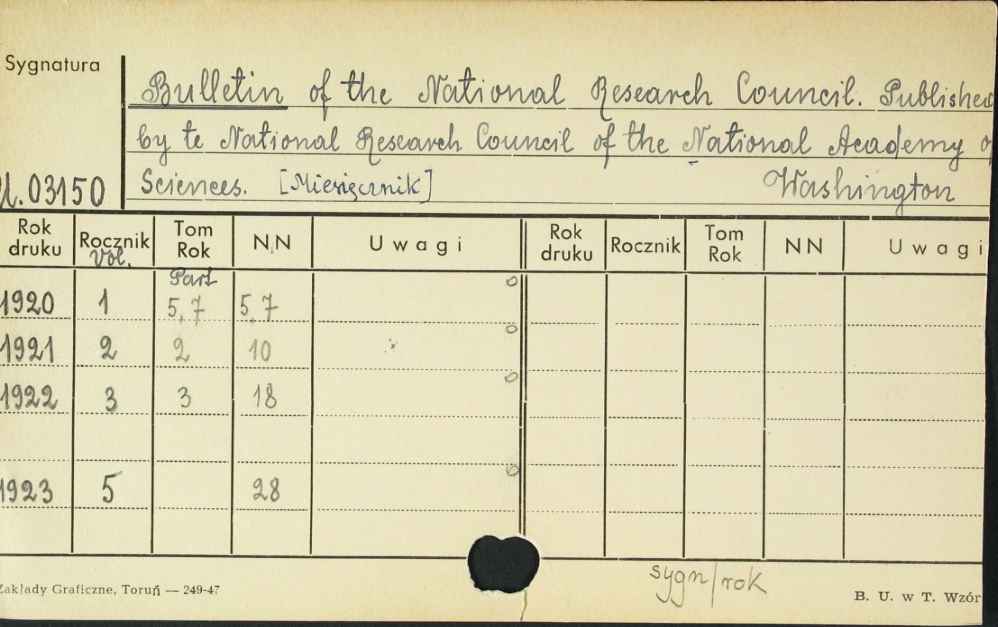 Sygnatura
Bulletin of the National Research Council. Published
by te National Research Council of the National Academy of
Sciences. [Miesięcznik] Washington
03150
Rok druku Rocznik Vol. Tom Rok NN Uwagi Rok druku Rocznik Tom Rok NN Uwagi
Part
1920 1 5,7 5,7
1921 2 2 10
1922 3 3 18
1923 5 28
sygn/rok
Zakłady Graficzne, Toruń — 249-47 B. U. w T. Wzór